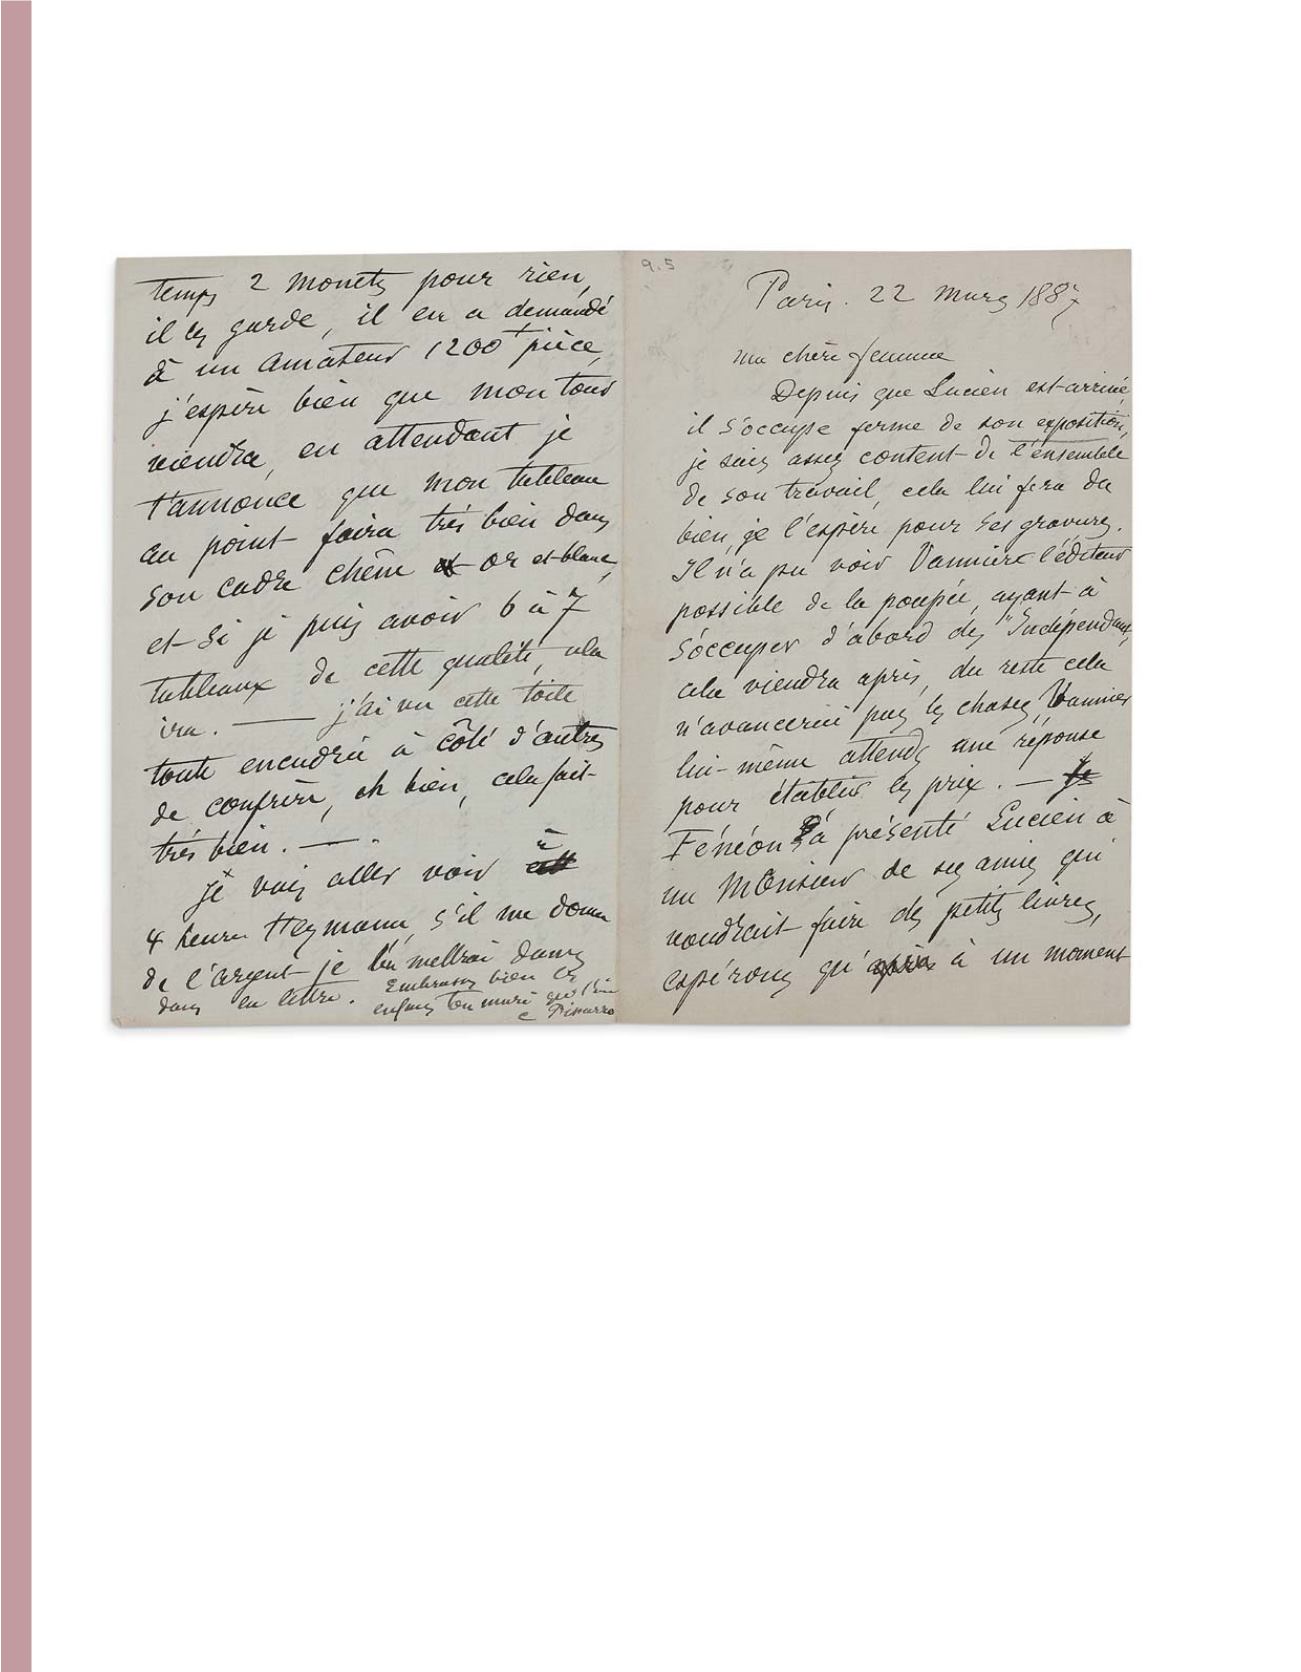 9.5
Paris. 22 Mars 1887
ma chère femme
Depuis que Lucien est arrivé,
il s'occupe ferme de son exposition,
je suis assez content de l'ensemble
de son travail, cela lui fera du
bien, je l'espère, pour ses gravures.
Il n'a pu voir Vannière l'éditeur
possible de la poupée, ayant à
s'occuper d'abord des "Indépendants,
cela viendra après, du reste cela
n'avancerait pas les choses, Vannier
lui-même attends une réponse
pour établir les prix. — Je
Fénéon a présenté Lucien à
un Monsieur de ses amis qui
voudrait faire des petits livres,
espérons qu'après à un moment
temps 2 Monets pour rien,
il les garde, il en a demandé
à un amateur 1200 f pièce,
j'espère bien que mon tour
viendra, en attendant je
t'annonce que mon tableau
au point faira très bien dans
son cadre chêne et or et blanc,
et si je puis avoir 6 à 7
tableaux de cette qualité, cela
ira. — j'ai vu cette toile
toute encadrée à côté d'autres
de confrère, eh bien, cela fait
très bien. — .
je vais aller voir à
4 heures Heymann, s'il me donne
de l'argent je le mettrai dans
dans la lettre. Embrasses bien les
enfants ton mari qui t'aime
C Pissarro